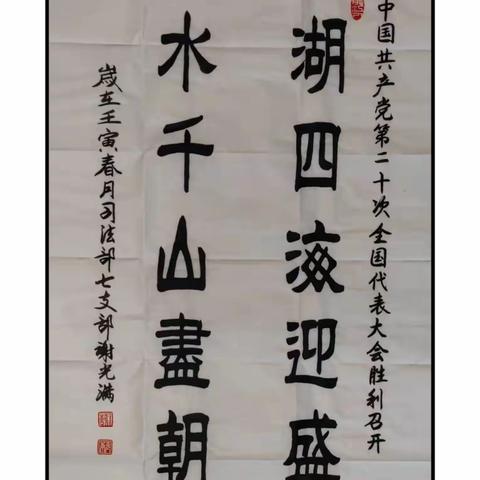 中国共产党第二十次全国代表大会胜利召开
湖四海迎盛
水千山盡朝
歲在壬寅春月司法部七支部謝光满